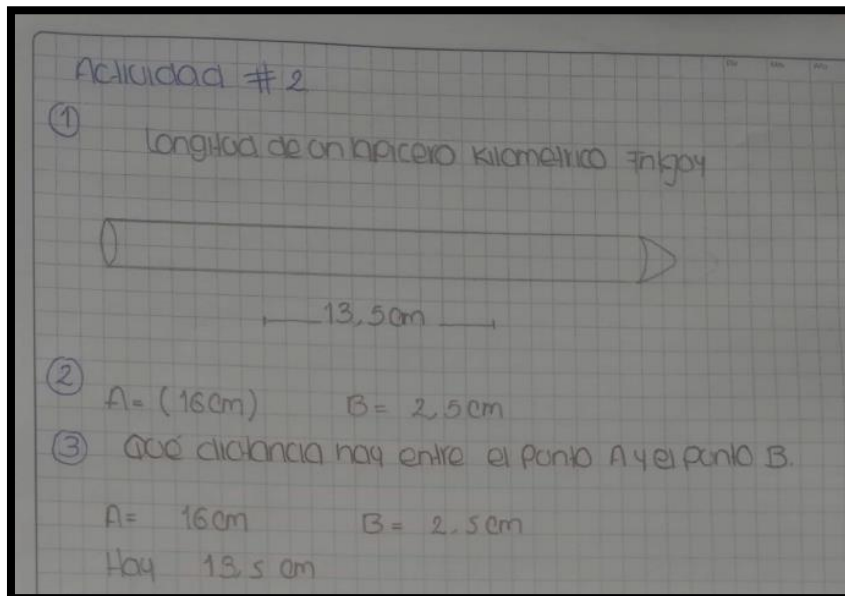 Actividad # 2
①
Longitud de un lapicero Kilometrico Inkjoy
13,5cm
②
A= (16cm) B= 2,5cm
③ Qué distancia hay entre el punto A y el punto B.
A= 16cm B= 2.5cm
Hay 13,5 cm